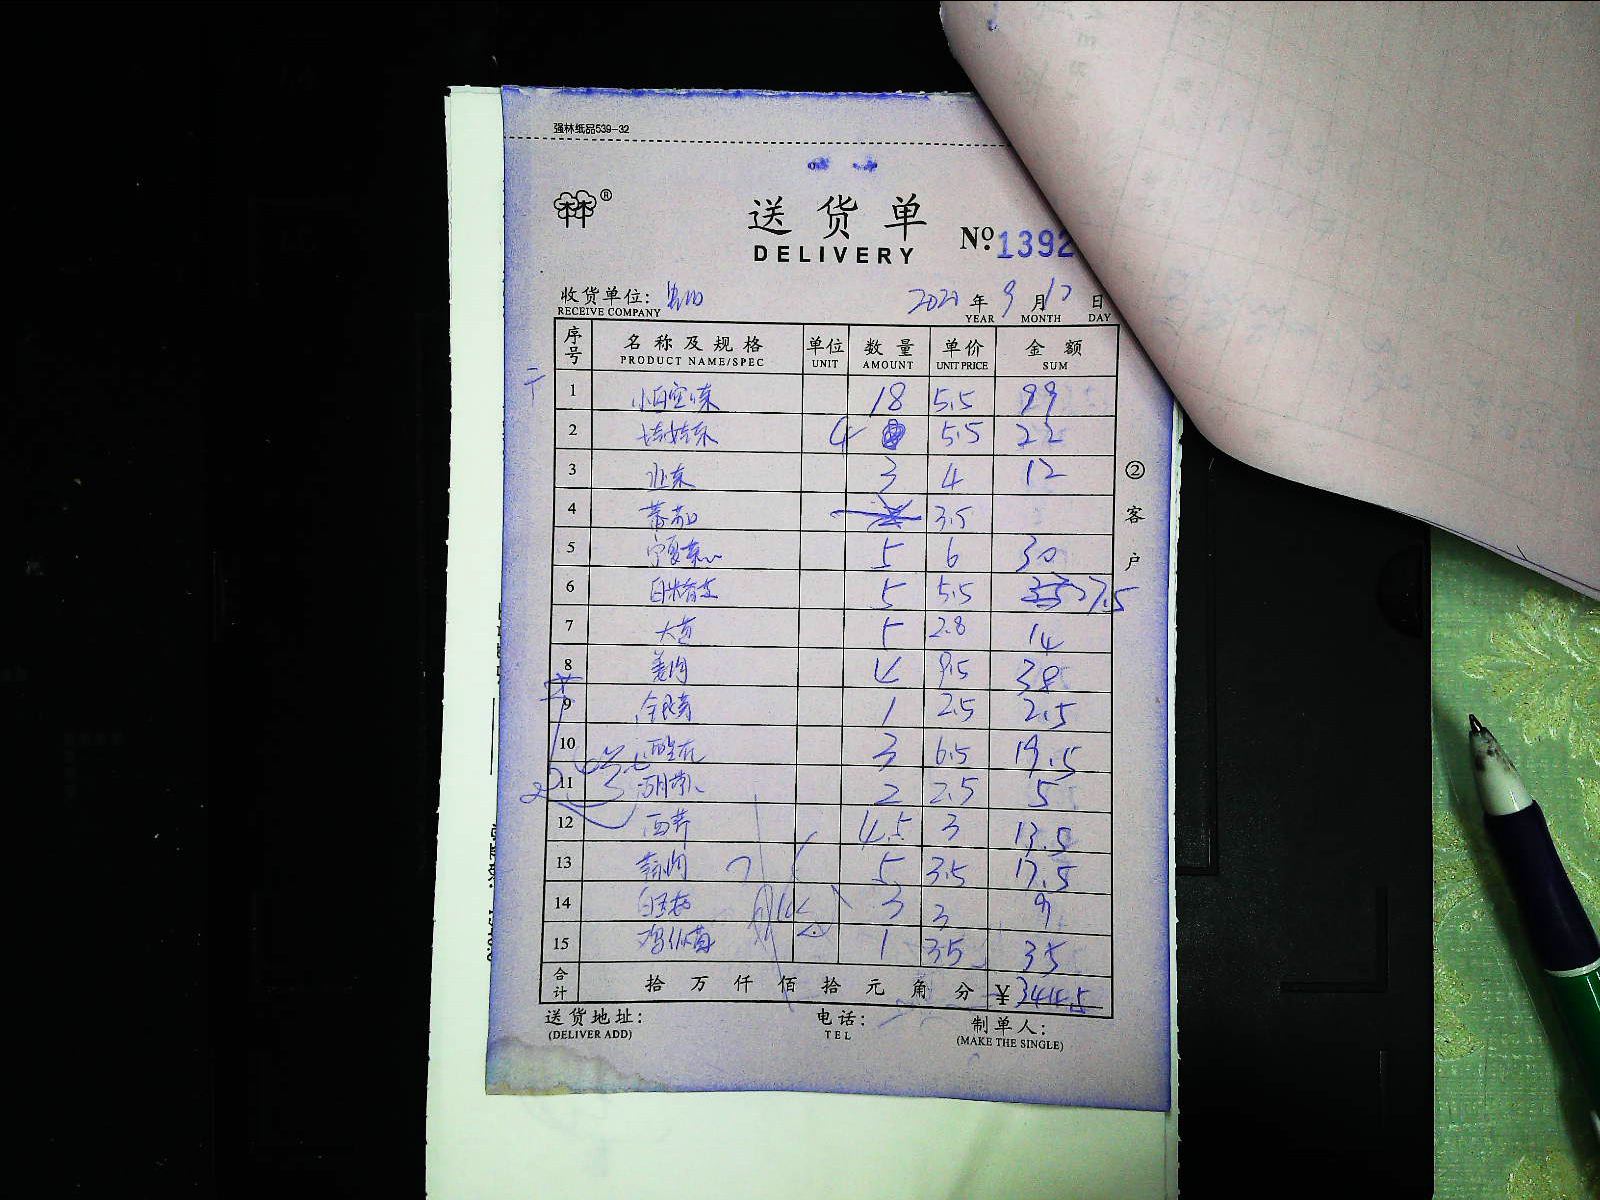 强林纸品539-32
林®
送货单
DELIVERY
Nº 1392
收货单位:
RECEIVE COMPANY
2021 年 9 月 17 日
YEAR MONTH DAY
序号 名称及规格 单位 数量 单价 金额
PRODUCT NAME/SPEC UNIT AMOUNT UNIT PRICE SUM
1 小白空心菜 18 5.5 99
2 娃娃菜 4 5.5 22
3 3 4 12
4 3.5
5 宁夏菜心 5 6 30
6 5 5.5 27.5
7 5 2.8 14
8 姜肉 4 9.5 38
9 金针菇 1 2.5 2.5
10 西兰花 3 6.5 19.5
11 2 2.5 5
12 西芹 4.5 3 13.5
13 5 3.5 17.5
14 白玉菇 3 3 9
15 鸡枞菌 1 35 35
②客户
合计 拾 万 仟 佰 拾 元 角 分 ¥ 344.5
送货地址: 电话: 制单人:
(DELIVER ADD) TEL (MAKE THE SINGLE)